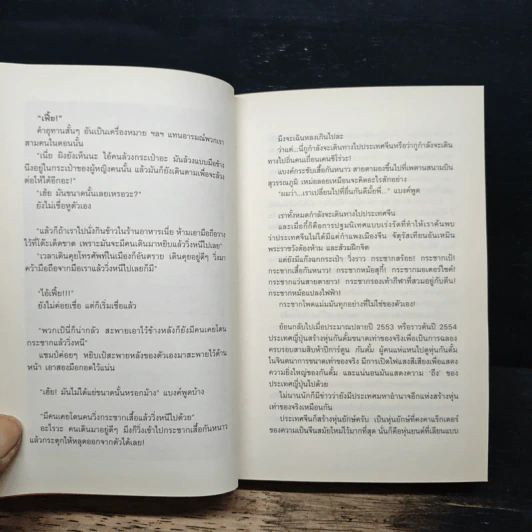 "เฟี้ย!"
คำอุทานสั้นๆ อันเป็นเครื่องหมาย ฯลฯ แทนอารมณ์พวกเรา
สามคนในตอนนั้น
"เนี่ย ผิงยังเห็นนะ ไอ้คนล้วงกระเป๋าอะ มันล้วงแบบมือข้าง
นึงอยู่ในกระเป๋าของผู้หญิงคนนั้น แล้วมันก็ยังเดินตามเพื่อจะล้วง
ต่อให้ได้อีกอะ!"
"เฮ้ย มันขนาดนั้นเลยเหรอวะ?"
ยังไม่เชื่อหูตัวเอง
"แล้วก็ถ้าเราไปนั่งกินข้าวในร้านอาหารเนี่ย ห้ามเอามือถือวาง
ไว้ที่โต๊ะเด็ดขาด เพราะมันจะมีคนเดินมาหยิบแล้ววิ่งหนีไปเลย"
"เวลาเดินคุยโทรศัพท์ในเมืองก็อันตราย เดินคุยอยู่ดีๆ วิ่งมา
คว้ามือถือจากมือเราแล้ววิ่งหนีไปเลยก็มี"
"ไอ้เฟี้ย!!!"
ยังไม่ค่อยเชื่อ แต่ก็เริ่มเชื่อแล้ว
"พวกเป้นี่ก็น่ากลัว สะพายเอาไว้ข้างหลังก็ยังมีคนเคยโดน
กระชากแล้ววิ่งหนี"
แชมป์ค่อยๆ หยิบเป้สะพายหลังของตัวเองมาสะพายไว้ด้าน
หน้า เอาสองมือกอดไว้แน่น
"เฮ้ย! มันไม่ได้แย่ขนาดนั้นหรอกม้าง" แบงค์พูดบ้าง
"มีคนเคยโดนคนวิ่งกระชากเสื้อแล้ววิ่งหนีไปด้วย"
อะไรวะ คนเดินมาอยู่ดีๆ มึงก็วิ่งเข้าไปกระชากเสื้อกันหนาว
แล้วกระตุกให้หลุดออกจากตัวได้เลย!
มึงจะเฉินหลงเกินไปละ
ว่าแต่...นี่กูกำลังจะเดินทางไปประเทศจีนหรือว่ากูกำลังจะเดิน
ทางไปถิ่นคนเถื่อนเดนซีโร่วะ!
แบงค์กระชับเสื้อกันหนาว สายตามองขึ้นไปที่เพดานสนามบิน
สุวรรณภูมิ เหม่อลอยเหมือนจะคิดอะไรสักอย่าง
"ผมว่า...เราเปลี่ยนไปที่อื่นกันดีมั้ยพี่..." แบงค์พูด
เราทั้งหมดกำลังจะเดินทางไปประเทศจีน
และเมื่อกี้ก็คือการปฐมนิเทศแบบเร่งรัดที่ทำให้เราค้นพบ
ว่าประเทศจีนไม่ได้มีแค่กำแพงเมืองจีน จัตุรัสเทียนอันเหมิน
พระราชวังต้องห้าม และส้วมฝึกจิต
แต่ยังมีแก๊งฉกกระเป๋า วิ่งราว กระชากสร้อย! กระชากเป้!
กระชากเสื้อกันหนาว! กระชากหม้อสุกี้! กระชากมอเตอร์ไซค์!
กระชากแว่นสายตายาว! กระชากรองเท้ากีฬาที่สวมอยู่กับตีน!
กระชากหม้อแปลงไฟฟ้า!
กระชากโพดแม่นมันทุกอย่างที่ไม่ใช่ของตัวเอง!
ย้อนกลับไปเมื่อประมาณปลายปี 2553 หรือราวต้นปี 2554
ประเทศญี่ปุ่นสร้างหุ่นกันดั้มขนาดเท่าของจริงเพื่อเป็นการฉลอง
ครบรอบสามสิบห้าปีการ์ตูน กันดั้ม ผู้คนแห่แหนไปดูหุ่นกันดั้ม
ในจินตนาการขนาดเท่าของจริง มีการเปิดไฟแสงสีเสียงเพื่อแสดง
ความยิ่งใหญ่ของกันดั้ม และแน่นอนมันแสดงความ 'ถึง' ของ
ประเทศญี่ปุ่นไปด้วย
ไม่นานนักก็มีข่าวว่ายังมีประเทศมหาอำนาจอีกแห่งสร้างหุ่น
เท่าของจริงเหมือนกัน
ประเทศจีนก็สร้างหุ่นยักษ์ครับ เป็นหุ่นยักษ์ที่คงคาแร็กเตอร์
ของความเป็นจีนสมัยใหม่ไว้มากที่สุด นั่นก็คือหุ่นยนต์ที่เลียนแบบ